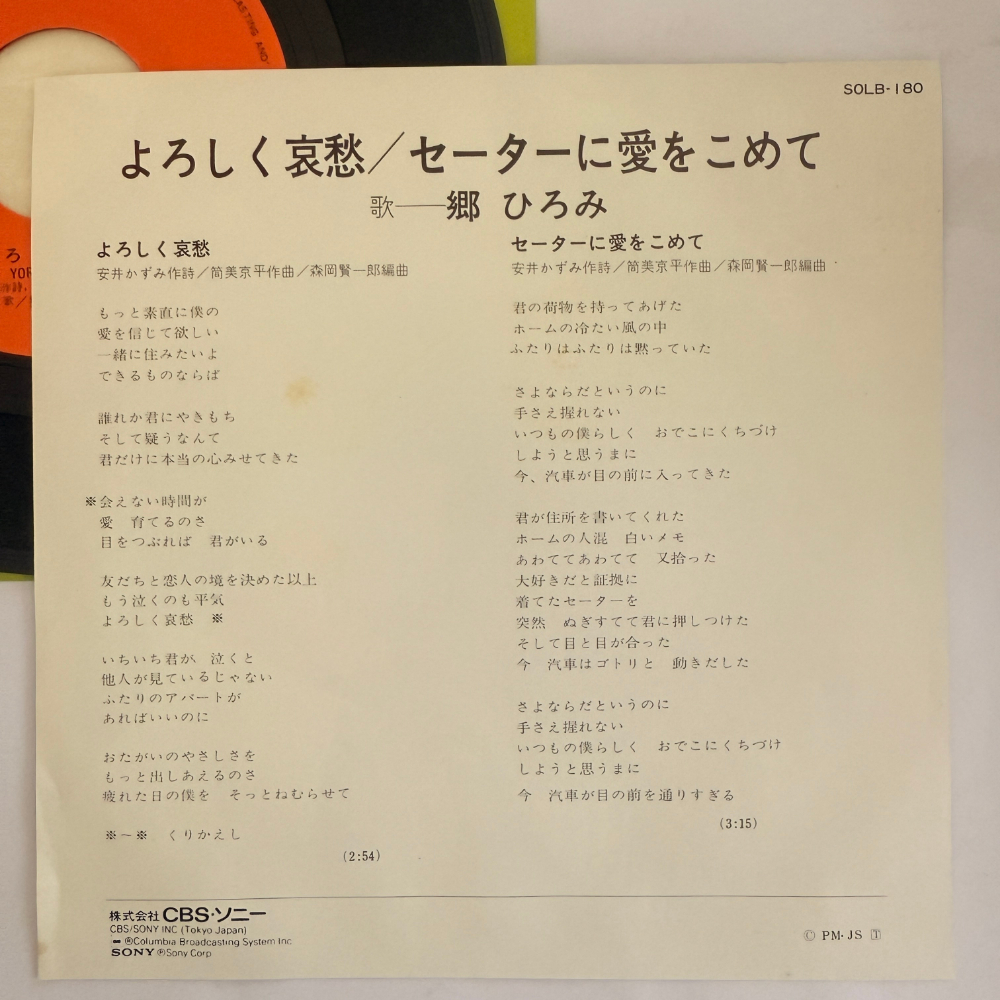 SOLB-180
よろしく哀愁／セーターに愛をこめて
歌――郷 ひろみ
よろしく哀愁
安井かずみ作詩／筒美京平作曲／森岡賢一郎編曲
もっと素直に僕の
愛を信じて欲しい
一緒に住みたいよ
できるものならば
誰れか君にやきもち
そして疑うなんて
君だけに本当の心みせてきた
※会えない時間が
愛　育てるのさ
目をつぶれば　君がいる
友だちと恋人の境を決めた以上
もう泣くのも平気
よろしく哀愁　※
いちいち君が　泣くと
他人が見ているじゃない
ふたりのアパートが
あればいいのに
おたがいのやさしさを
もっと出しあえるのさ
疲れた日の僕を　そっとねむらせて
※～※　くりかえし
(2:54)
セーターに愛をこめて
安井かずみ作詩／筒美京平作曲／森岡賢一郎編曲
君の荷物を持ってあげた
ホームの冷たい風の中
ふたりはふたりは黙っていた
さよならだというのに
手さえ握れない
いつもの僕らしく　おでこにくちづけ
しようと思うまに
今、汽車が目の前に入ってきた
君が住所を書いてくれた
ホームの人混　白いメモ
あわててあわてて　又拾った
大好きだと証拠に
着てたセーターを
突然　ぬぎすてて君に押しつけた
そして目と目が合った
今　汽車はゴトリと　動きだした
さよならだというのに
手さえ握れない
いつもの僕らしく　おでこにくちづけ
しようと思うまに
今　汽車が目の前を通りすぎる
(3:15)
株式会社 CBS・ソニー
CBS/SONY INC (Tokyo Japan)
®Columbia Broadcasting System Inc
SONY ℗Sony Corp
© PM・JS 1